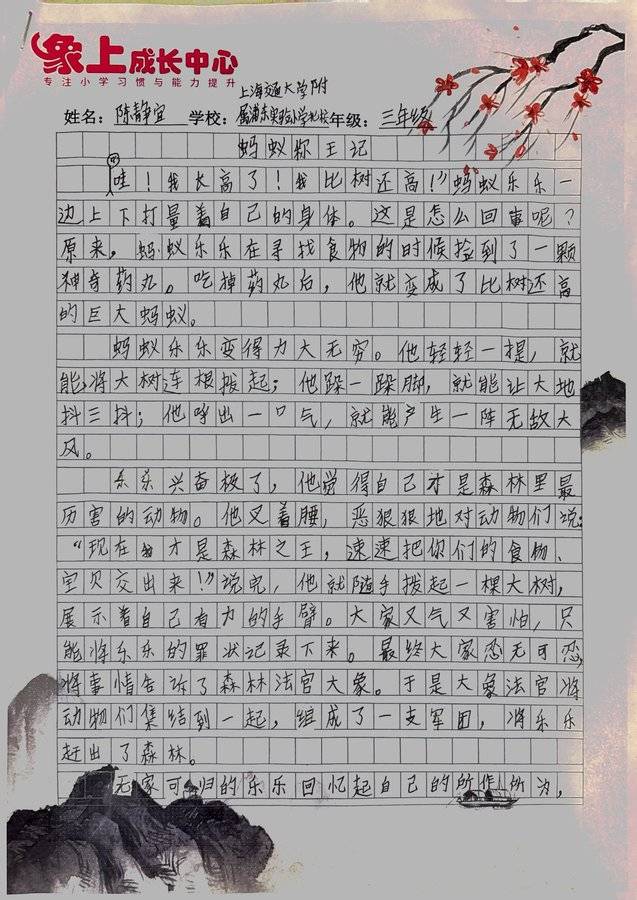 象上成长中心
专注小学习惯与能力提升
上海交通大学附
姓名：陈静宜 学校：属浦东实验小学北校 年级：三年级
蚂蚁称王记
“哇！我长高了！我比树还高！”蚂蚁乐乐一
边上下打量着自己的身体。这是怎么回事呢？
原来，蚂蚁乐乐在寻找食物的时候捡到了一颗
神奇药丸。吃掉药丸后，他就变成了比树还高
的巨大蚂蚁。
蚂蚁乐乐变得力大无穷。他轻轻一提，就
能将大树连根拨起；他跺一跺脚，就能让大地
抖三抖；他呼出一口气，就能产生一阵无敌大
风。
乐乐兴奋极了，他觉得自己才是森林里最
厉害的动物。他叉着腰，恶狠狠地对动物们说：
“现在我才是森林之王，速速把你们的食物、
宝贝交出来！”说完，他就随手拨起一棵大树，
展示着自己有力的手臂。大家又气又害怕，只
能将乐乐的罪状记录下来。最终大家忍无可忍，
将事情告诉了森林法官大象。于是大象法官将
动物们集结到一起，组成了一支军团，将乐乐
赶出了森林。
无家可归的乐乐回忆起自己的所作所为，